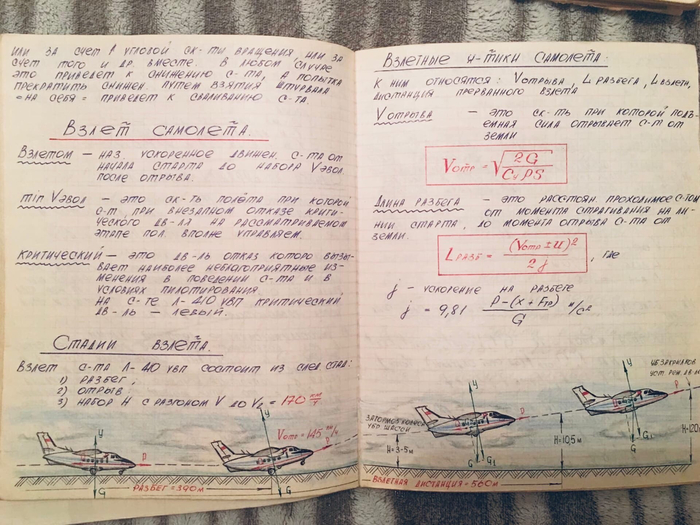 ИЛИ ЗА СЧЕТ ↑ УГЛОВОЙ СК-ТИ ВРАЩЕНИЯ, ИЛИ ЗА
СЧЕТ ТОГО И ДР. ВМЕСТЕ. В ЛЮБОМ СЛУЧАЕ
ЭТО ПРИВЕДЕТ К СНИЖЕНИЮ С-ТА, А ПОПЫТКА
ПРЕКРАТИТЬ СНИЖЕН. ПУТЕМ ВЗЯТИЯ ШТУРВАЛА
"НА СЕБЯ" ПРИВЕДЕТ К СВАЛИВАНИЮ С-ТА.
ВЗЛЕТ САМОЛЕТА.
ВЗЛЕТОМ – НАЗ. УСКОРЕННОЕ ДВИЖЕН. С-ТА ОТ
НАЧАЛА СТАРТА ДО НАБОРА VЭВОЛ.
ПОСЛЕ ОТРЫВА.
min VЭВОЛ – ЭТО СК-ТЬ ПОЛЁТА ПРИ КОТОРОЙ
С-Т, ПРИ ВНЕЗАПНОМ ОТКАЗЕ КРИТИ-
ЧЕСКОГО ДВ-ЛЯ НА РАССМАТРИВАЕМОМ
ЭТАПЕ ПОЛ. ВПОЛНЕ УПРАВЛЯЕМ.
КРИТИЧЕСКИЙ – ЭТО ДВ-ЛЬ ОТКАЗ КОТОРО ВЫЗЫ-
ВАЕТ НАИБОЛЕЕ НЕБЛАГОПРИЯТНЫЕ ИЗ-
МЕНЕНИЯ В ПОВЕДЕНИИ С-ТА И В
УСЛОВИЯХ ПИЛОТИРОВАНИЯ.
НА С-ТЕ Л-410 УВП КРИТИЧЕСКИЙ
ДВ-ЛЬ – ЛЕВЫЙ.
СТАДИИ ВЗЛЕТА.
ВЗЛЕТ С-ТА Л-410 УВП СОСТОИТ ИЗ СЛЕД. СТАД:
1) РАЗБЕГ,
2) ОТРЫВ,
3) НАБОР Н С РАЗГОНОМ V ДО V₂ = 170 км/ч
Vотр = 145 км/ч
У
Р
G
У
Р
G
РАЗБЕГ = 390м
ВЗЛЕТНЫЕ Х-ТИКИ САМОЛЕТА.
К НИМ ОТНОСЯТСЯ: VОТРЫВА, L РАЗБЕГА, L ВЗЛЕТН,
ДИСТАНЦИЯ ПРЕРВАННОГО ВЗЛЕТА
VОТРЫВА – ЭТО СК-ТЬ ПРИ КОТОРОЙ ПОДЪ-
ЕМНАЯ СИЛА ОТРЫВАЕТ С-Т ОТ
ЗЕМЛИ
Vотр = √(2G / CyρS)
ДЛИНА РАЗБЕГА – ЭТО РАССТОЯН. ПРОХОДИМОЕ С-ТОМ
ОТ МОМЕНТА СТРАГИВАНИЯ НА ЛИ-
НИИ СТАРТА, ДО МОМЕНТА ОТРЫВА С-ТА ОТ
ЗЕМЛИ.
L РАЗБ = (Vотр ± u)² / 2j , ГДЕ
j – УСКОРЕНИЕ НА РАЗБЕГЕ
j = 9,81 P – (X + Fтр) / G м/с²
УБ ЗАКРЫЛКОВ
ЗАТОРМОЗ. КОЛЕСА
УБР. ШАССИ
Н = 3-5м
У
Р
G
G₁
Н = 10,5м
У
Р
G
G₁
Н=120
ВЗЛЕТНАЯ ДИСТАНЦИЯ = 560м